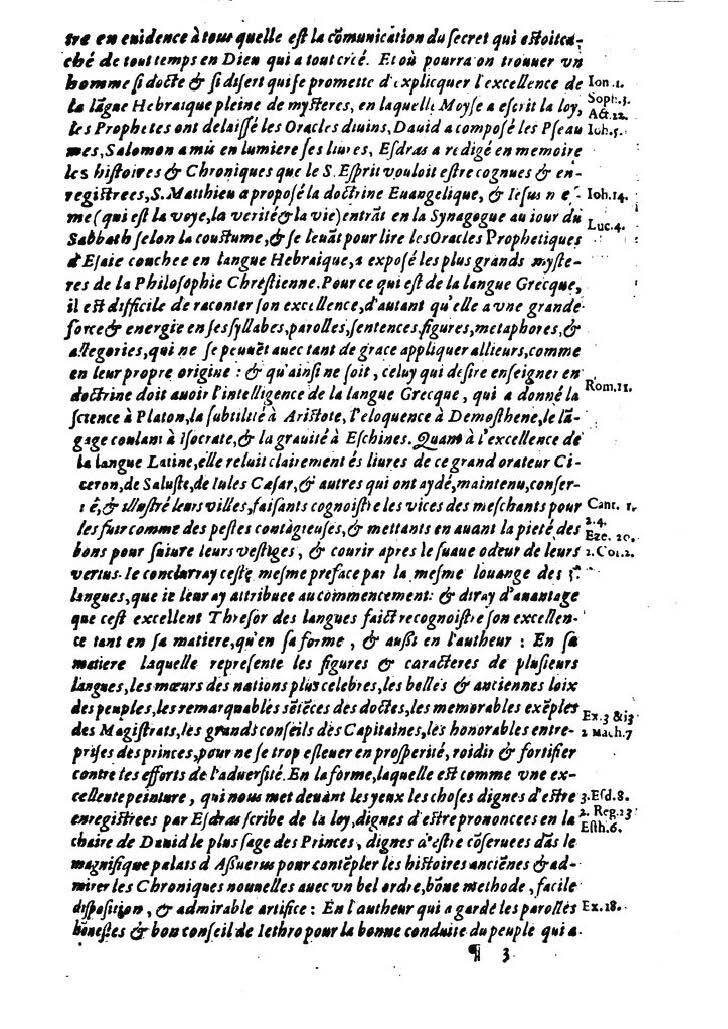 tre en euidence à tous quelle est la cõmunication du secret qui estoit ca-
ché de tout temps en Dieu qui a tout creé. Et où pourra on trouuer vn
homme si docte & si disert qui se promette d'explicquer l'excellence de
la lãgue Hebraique pleine de mysteres, en laquelle Moyse a escrit la loy,
les Prophetes ont delaissé les Oracles diuins, Dauid a composé les Pseau
mes, Salomon a mis en lumiere ses liures, Esdras a redigé en memoire
les histoires & Chroniques que le S. Esprit vouloit estre cognues & en-
registrees, S. Matthieu a proposé la doctrine Euangelique, & Iesus mes-
me (qui est la voye, la verité & la vie) entrãt en la Synagogue au iour du
Sabbath selon la coustume, & se leuãt pour lire les Oracles Prophetiques
d'Esaie couchee en langue Hebraique, a exposé les plus grands myste-
res de la Philosophie Chrestienne. Pour ce qui est de la langue Grecque,
il est difficile de raconter son excellence, d'autant qu'elle a vne grande
force & energie en ses syllabes, parolles, sentences, figures, metaphores, &
allegories, qui ne se peuuẽt auec tant de grace appliquer allieurs, comme
en leur propre origine : & qu'ainsi ne soit, celuy qui desire enseigner en
doctrine doit auoir l'intelligence de la langue Grecque, qui a donné la
science à Platon, la subtilité à Aristote, l'eloquence à Demosthene, le lã-
gage coulant à Isocrate, & la grauité à Eschines. Quant à l'excellence de
la langue Latine, elle reluit clairement és liures de ce grand orateur Ci-
ceron, de Saluste, de Iules Cæsar, & autres qui ont aydé, maintenu, conser-
ué, & illustré leurs villes, faisants cognoistre les vices des meschants pour
les fuir comme des pestes contagieuses, & mettants en auant la pieté des
bons pour suiure leurs vestiges, & courir apres le suaue odeur de leurs
vertus. Ie conclurray ceste mesme preface par la mesme louange des
langues, que ie leur ay attribuee au commencement: & diray d'auantage
que cest excellent Thresor des langues faict recognoistre son excellen-
ce tant en sa matiere, qu'en sa forme, & aussi en l'autheur : En sa
matiere laquelle represente les figures & caracteres de plusieurs
langues, les mœurs des nations plus celebres, les belles & anciennes loix
des peuples, les remarquables sẽtẽces des doctes, les memorables exẽples
des Magistrats, les grands conseils des Capitaines, les honorables entre-
prises des princes, pour ne se trop esleuer en prosperité, roidir & fortifier
contre les efforts de l'aduersité. En la forme, laquelle est comme vne ex-
cellente peinture, qui nous met deuant les yeux les choses dignes d'estre
enregistrees par Esdras scribe de la loy, dignes d'estre prononcees en la
chaire de Dauid le plus sage des Princes, dignes d'estre cõseruees dãs le
magnifique palais d'Assuerus pour contẽpler les histoires anciẽnes & ad-
mirer les Chroniques nouuelles auec vn bel ordre, bõne methode, facile
disposition, & admirable artifice : En l'autheur qui a gardé les parolles
hõnestes & bon conseil de Iethro pour la bonne conduite du peuple qui a
¶ 3
Ion. 1.
Soph. 3.
Act. 22.
Ioh. 5.
Ioh. 14.
Luc. 4.
Rom. 11.
Cant. 1.
2.4.
Eze. 20.
2. Cor. 2.
Ex. 3 & 13
2 Mach. 7
3. Esd. 8.
2. Reg. 23
Esth. 6.
Ex. 18.